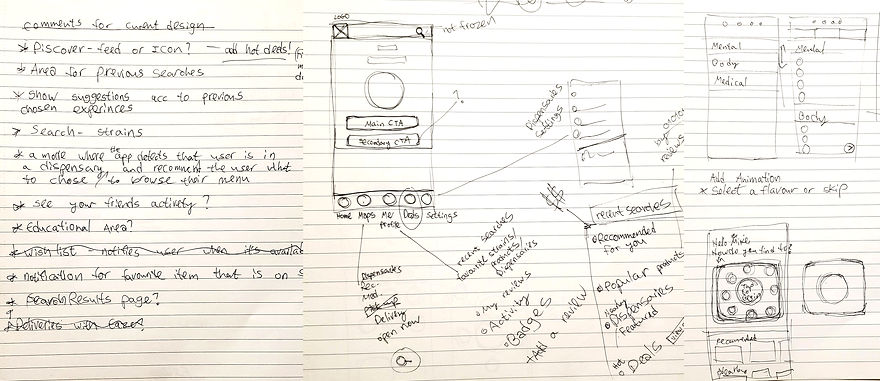 comments for current design
* Discover-feed or Icon? — add hot deals!
* Area for previous searches
* show suggestions acc to previous
chosen experinces
* Search - strains
* a mode where the app detects that user is in
a dispensary and recommend the user what
to chose / to browse their menu
* see your friends activity?
* Educational Area?
* wish list - notifies user when it's
* notification for favourite item that is on
* Search Results page?
* Deliveries with
LOGO
not frozen
Main CTA
Secondary CTA
?
Home Maps My profile Deals Settings
Dispensaries
Rec-
Med-
Delivery
open now
recent searches
favourite strains/
products/
Dispensaries
• My reviews
• Activity
• Badges
+ Add a review
Dispensaries
settings
reviews
recent searches
• Recommended
for you
• Popular products
Nearby
• Dispensaries
Featured
Hot
• Deals
Mental
Body
Medical
Mental
Body
Add Animation
* Select a flavour or skip
recommended